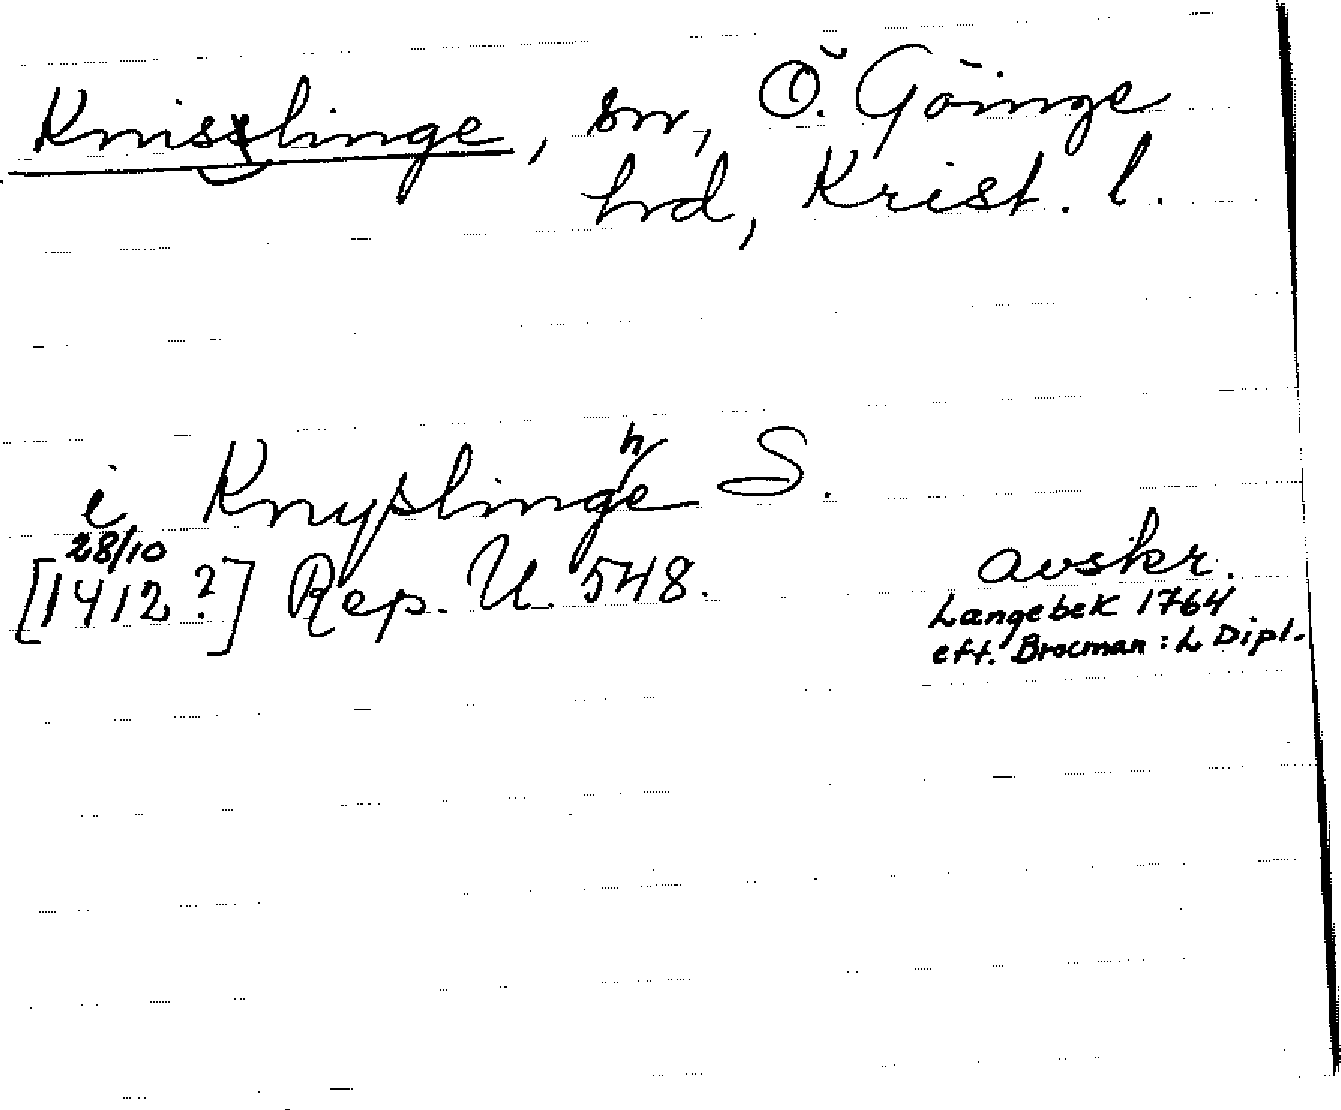 Knislinge, sn, Ö. Göinge
hrd, Krist. l.
i Knyslinghe S.
28/10
[1412?] Rep. U. 548.
avskr.
Langebek 1764
eft. Brocman: L Dipl.